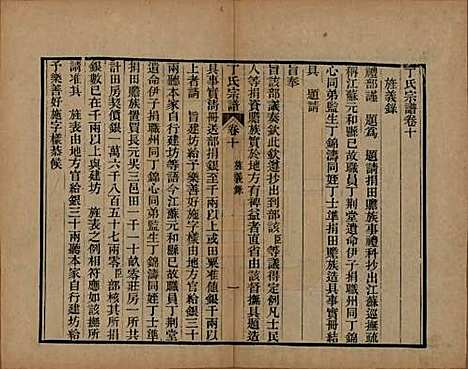 丁氏宗譜卷十
旌義錄
禮部謹　題爲　題請捐田贍族事禮科抄出江蘇巡撫疏
稱江蘇元和縣已故職員丁荆堂遺命伊子捐職州同丁錦
心同弟監生丁錦濤同姪丁士㻞捐田贍族造具事實冊結
具　題請
旨奉
旨該部議奏欽此欽遵抄出到部該臣等議得定例凡士民
人等捐資贍族實於地方有裨益者直省由該督撫具題造
丁氏宗譜　卷十　旌義錄　一
具事實清冊送部捐銀至千兩以上或田粟準值銀千兩以
上者請　旨建坊給予樂善好施字樣由地方官給銀三十
兩聽本家自行建坊等語今江蘇元和縣已故職員丁荆堂
遺命伊子捐職州同丁錦心同弟監生丁錦濤同姪丁士
計田房契價銀一萬六千八百五十七兩零臣部核其所捐
銀數已在千兩以上與建坊　旌表之例相符應如該撫所
請准其　旌表由地方官給銀三十兩聽本家自行建坊給
予樂善好施字樣恭候